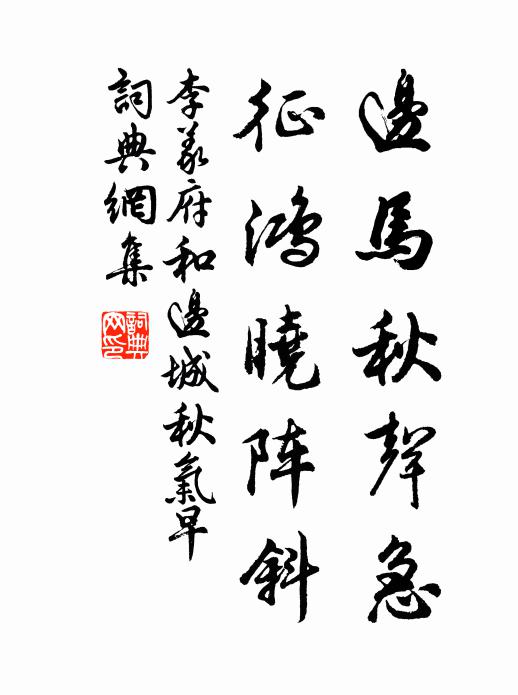 邊馬秋聲急
征鴻曉阵斜
李義府和邊城秋氣早
詞典網集
詞典网印